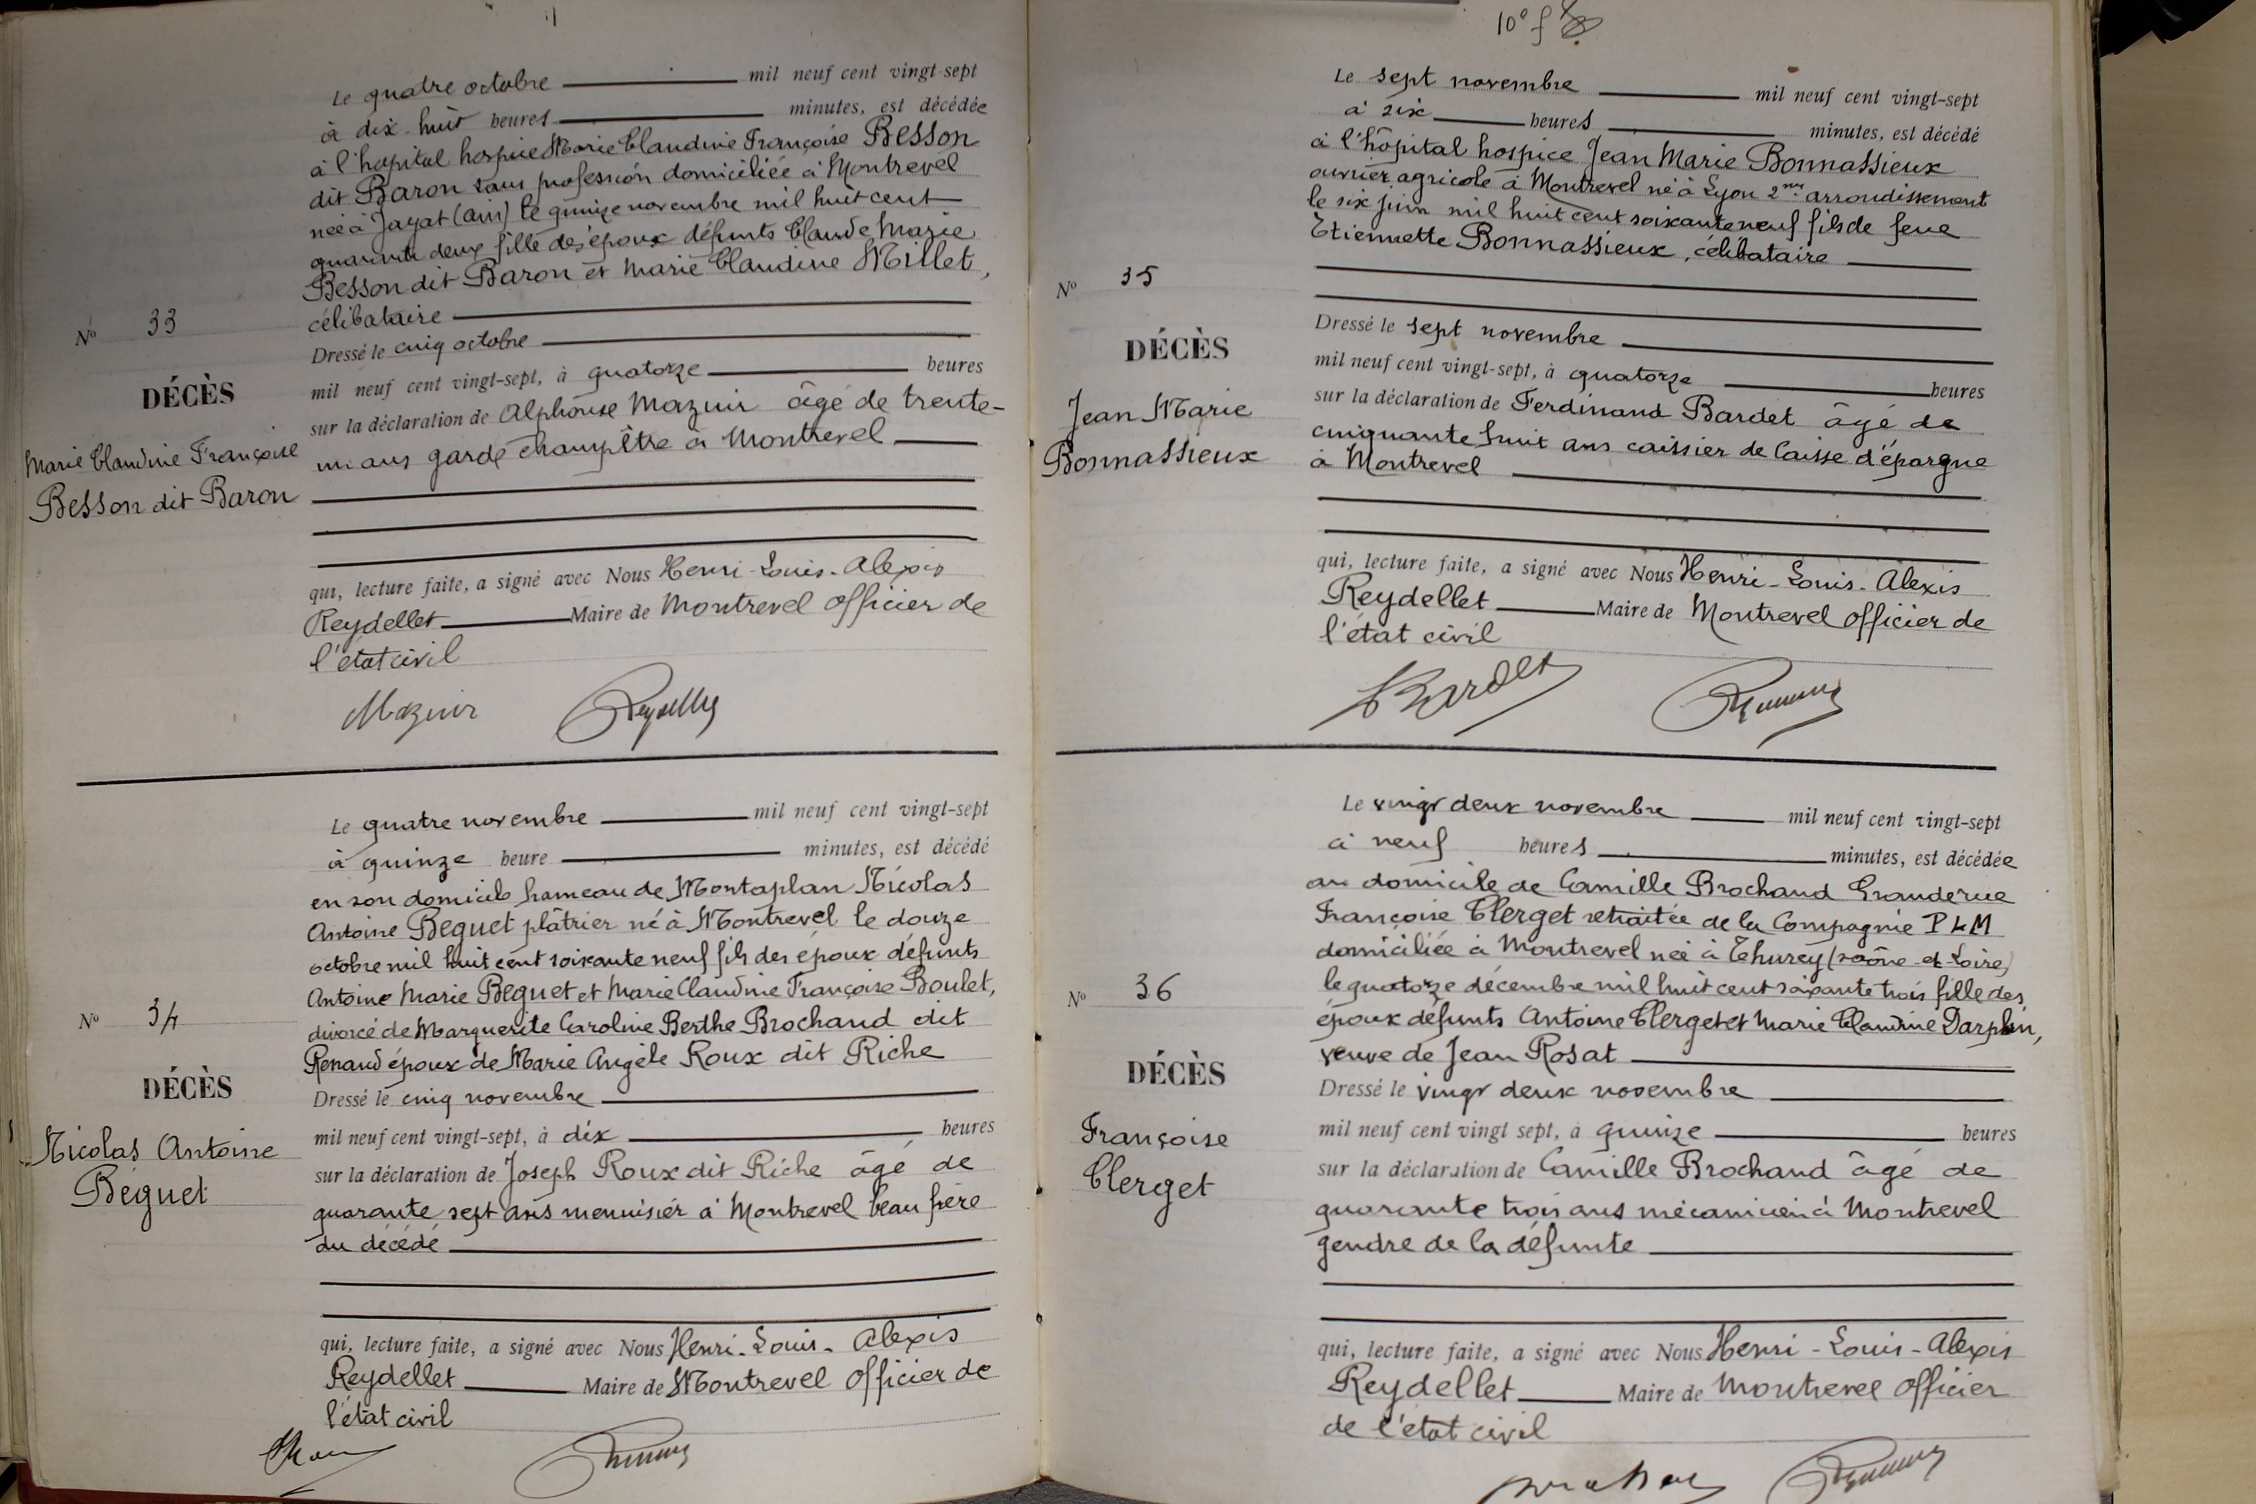 Le quatre octobre mil neuf cent vingt-sept
à dix-huit heures minutes, est décédée
à l'hopital hospice Marie Claudine Françoise Besson
dit Baron sans profession domiciliée à Montrevel
née à Jayat (ain) le quinze novembre mil huit cent
quarante deux fille des époux défunts Claude Marie
Besson dit Baron et Marie Claudine Millet,
célibataire
Nº 33
DÉCÈS
Marie Claudine Françoise
Besson dit Baron
Dressé le cinq octobre
mil neuf cent vingt-sept, à quatorze heures
sur la déclaration de Alphonse Mazuir âgé de trente-
un ans garde champêtre à Montrevel
qui, lecture faite, a signé avec Nous Henri-Louis-Alexis
Reydellet Maire de Montrevel officier de
l'état civil
Mazuir Reydellet
Le quatre novembre mil neuf cent vingt-sept
à quinze heure minutes, est décédé
en son domicile hameau de Montaplan Nicolas
Antoine Béguet plâtrier né à Montrevel le douze
octobre mil huit cent soixante neuf fils des époux défunts
Antoine Marie Béguet et Marie Claudine Françoise Boulet,
divorcé de Marguerite Caroline Berthe Brochand dit
Renaud époux de Marie Angèle Roux dit Riche
Nº 34
DÉCÈS
Nicolas Antoine
Béguet
Dressé le cinq novembre
mil neuf cent vingt-sept, à dix heures
sur la déclaration de Joseph Roux dit Riche âgé de
quarante sept ans menuisier à Montrevel beau frère
du décédé
qui, lecture faite, a signé avec Nous Henri-Louis-Alexis
Reydellet Maire de Montrevel officier de
l'état civil
10e f
Le sept novembre mil neuf cent vingt-sept
à six heures minutes, est décédé
à l'hôpital hospice Jean Marie Bonnassieux
ouvrier agricole à Montrevel né à Lyon 2me arrondissement
le six juin mil huit cent soixante neuf fils de feue
Etiennette Bonnassieux, célibataire
Nº 35
DÉCÈS
Jean Marie
Bonnassieux
Dressé le sept novembre
mil neuf cent vingt-sept, à quatorze heures
sur la déclaration de Ferdinand Bardet âgé de
cinquante huit ans caissier de Caisse d'épargne
à Montrevel
qui, lecture faite, a signé avec Nous Henri-Louis-Alexis
Reydellet Maire de Montrevel officier de
l'état civil
Bardet
Le vingt deux novembre mil neuf cent vingt-sept
à neuf heures minutes, est décédée
au domicile de Camille Brochand Grande rue
Françoise Clerget retraitée de la Compagnie PLM
domiciliée à Montrevel née à Thurey (saône-et-Loire)
le quatorze décembre mil huit cent soixante trois fille des
époux défunts Antoine Clerget et Marie Claudine Darphin,
veuve de Jean Rosat
Nº 36
DÉCÈS
Françoise
Clerget
Dressé le vingt deux novembre
mil neuf cent vingt sept, à quinze heures
sur la déclaration de Camille Brochand âgé de
quarante trois ans mécanicien à Montrevel
gendre de la défunte
qui, lecture faite, a signé avec Nous Henri-Louis-Alexis
Reydellet Maire de Montrevel officier
de l'état civil